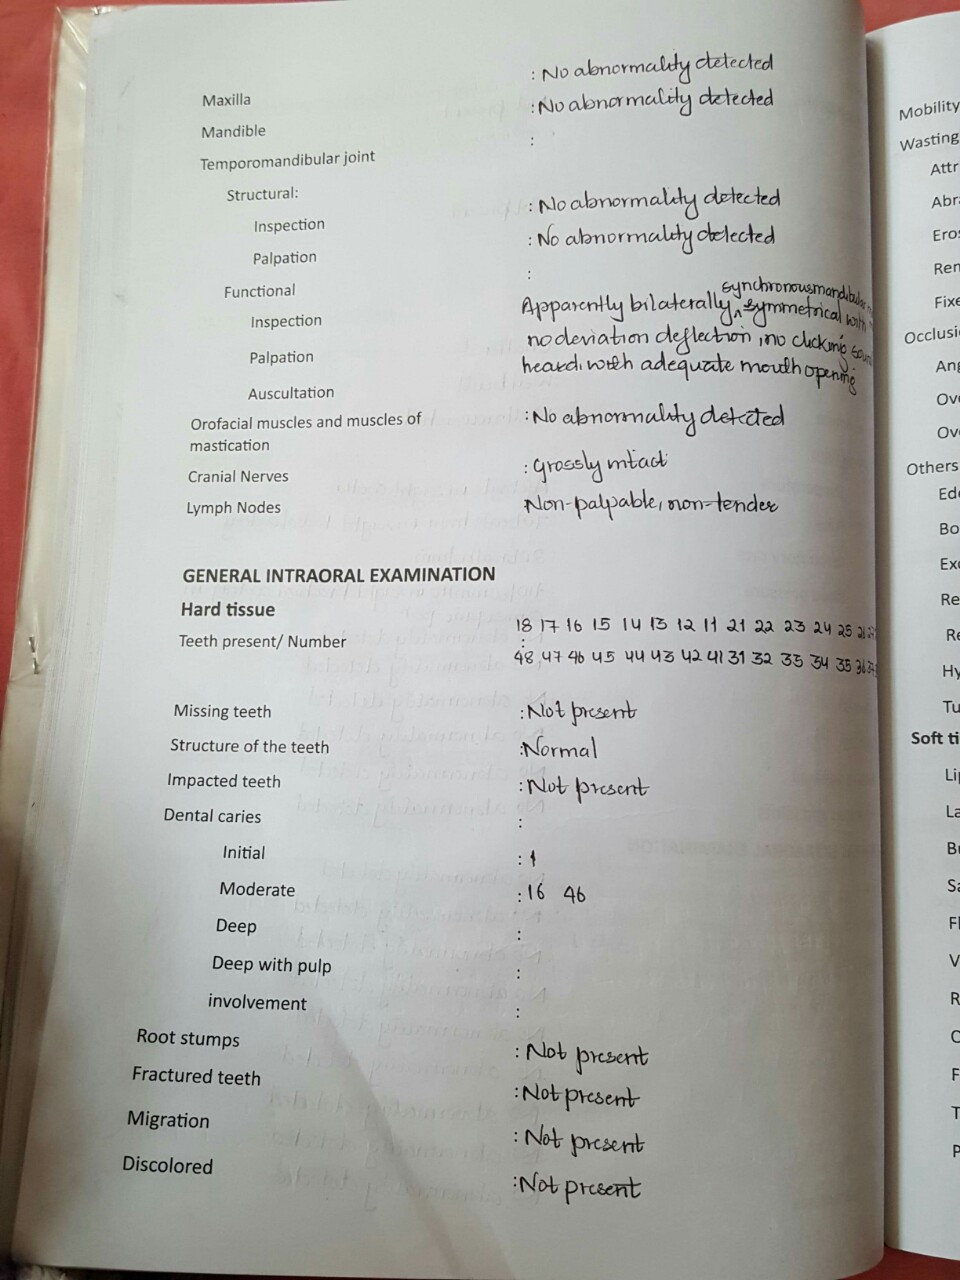 Maxilla : No abnormality detected
Mandible : No abnormality detected
Temporomandibular joint :
Structural:
Inspection : No abnormality detected
Palpation : No abnormality detected
Functional :
Inspection Apparently bilaterally synchronous mandibular symmetrical with
Palpation no deviation deflection, no clicking
Auscultation heard. with adequate mouth opening
Orofacial muscles and muscles of : No abnormality detected
mastication
Cranial Nerves : Grossly intact
Lymph Nodes Non-palpable, non-tender
GENERAL INTRAORAL EXAMINATION
Hard tissue
18 17 16 15 14 13 12 11 21 22 23 24 25
Teeth present/ Number :
48 47 46 45 44 43 42 41 31 32 33 34 35 36
Missing teeth : Not present
Structure of the teeth : Normal
Impacted teeth : Not present
Dental caries :
Initial :
Moderate : 16 46
Deep :
Deep with pulp :
involvement :
Root stumps : Not present
Fractured teeth : Not present
Migration : Not present
Discolored : Not present
Mobility
Wasting
Attr
Abr
Eros
Ren
Fixe
Occlusi
Ang
Ove
Ove
Others
Ede
Bo
Exc
Re
Re
Hy
Tu
Soft ti
Li
La
Bu
Sa
Fl
V
R
F
T
P